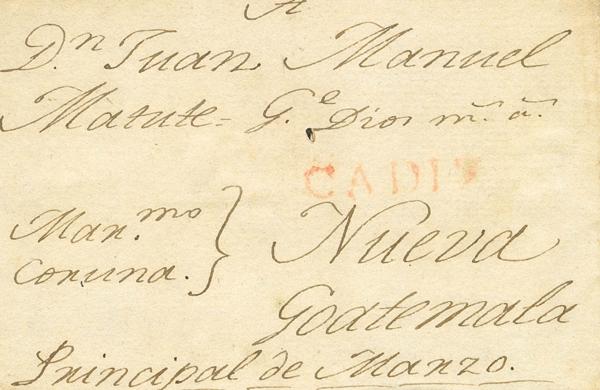 A
D.n Juan Manuel
Matute = G.e Dios m.s a.s
CADIZ
Mar.mo
Coruna.
Nueva
Goatemala
Principal de Marzo.